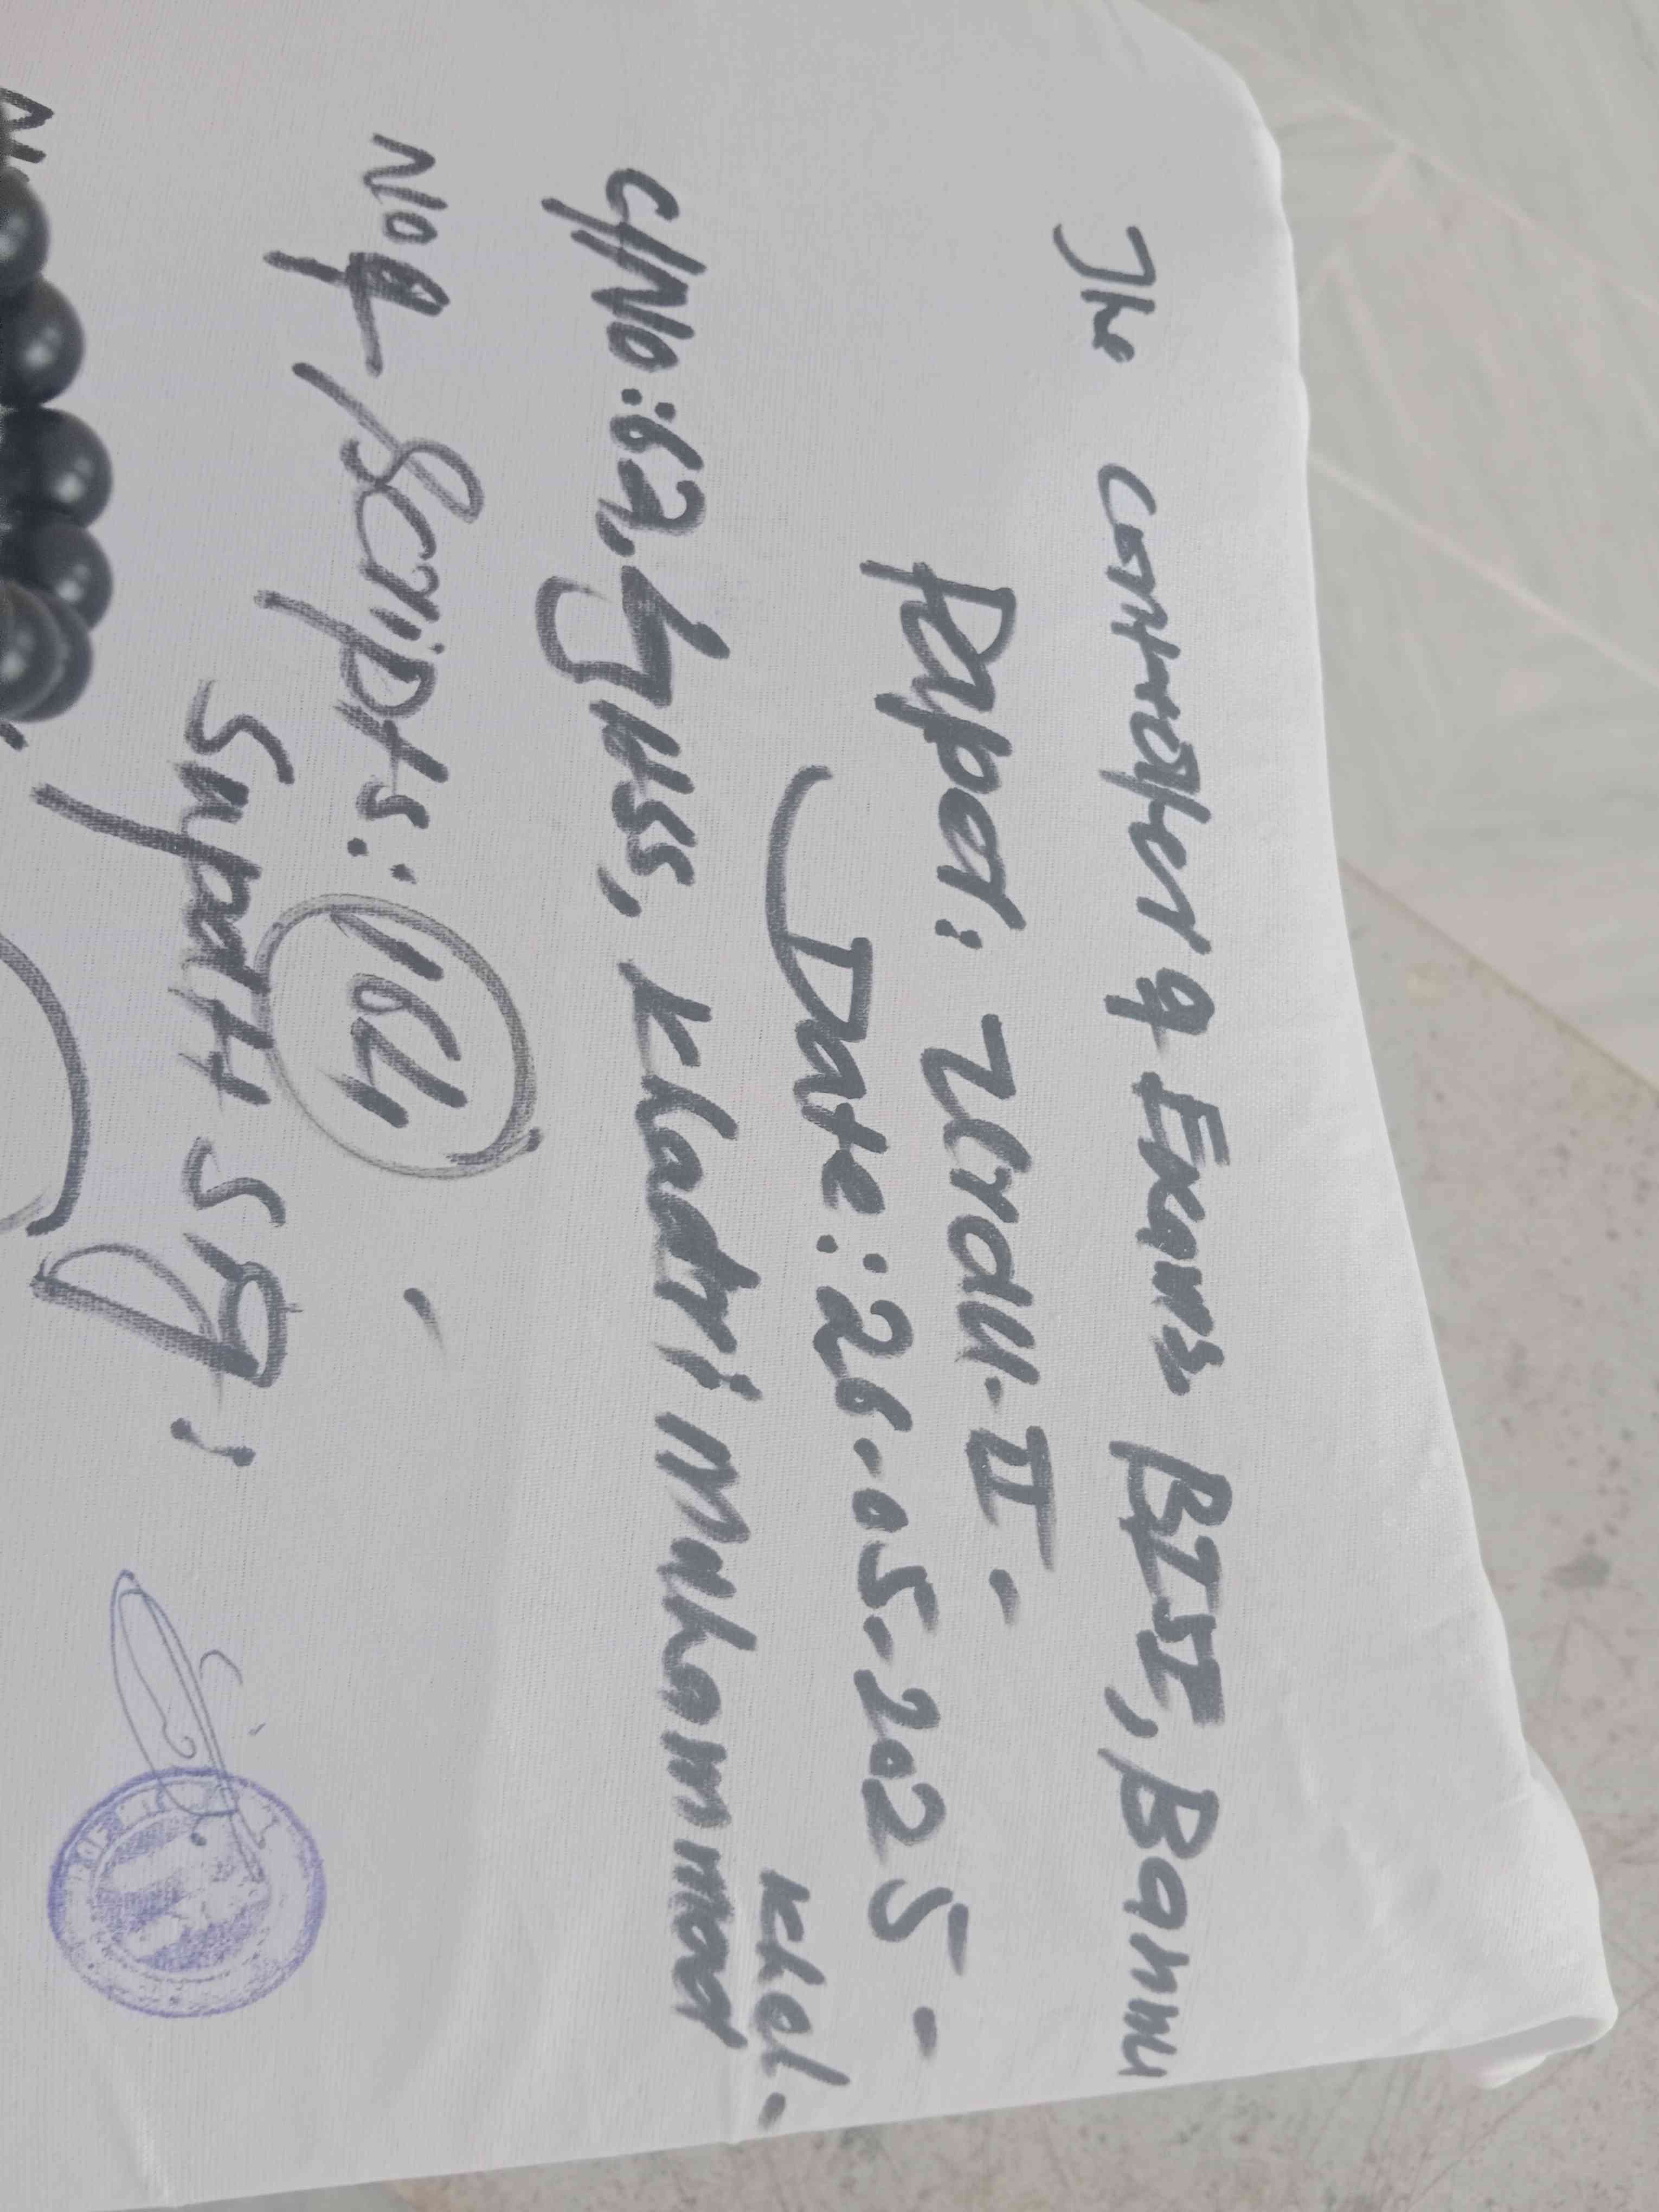 The Controller of Exams BISE, Bannu
Paper: Urdu. II.
Date: 26.05.2025 -
C/No: 62, GHSS, Khadri Mohammad
Khel.
No of Scripts: 164
Supdtt Sig: